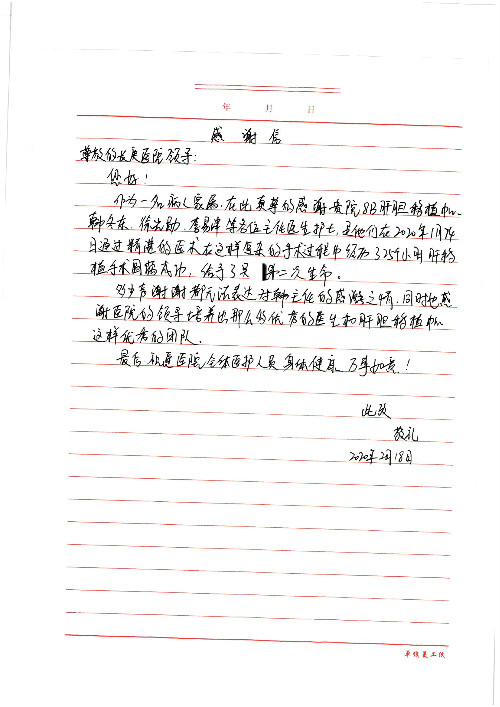 年 月 日
感 谢 信
尊敬的长庚医院领导:
您好!
作为一名病人家属,在此真挚的感谢贵院8B肝胆移植中心
韩冬东、徐光勋、李易津等各位主任医生护士,是他们在2020年1月7
日通过精湛的医术在这样复杂的手术过程中经历了25个小时肝移
植手术圆满成功,给予了 第二次生命。
万声谢谢都无法表达对韩主任的感激之情,同时也感
谢医院的领导培养出那么的优秀的医生和肝胆移植中心
这样优秀的团队。
最后 祝愿医院全体医护人员 身体健康 万事如意!
此致
敬礼
2020年2月18日